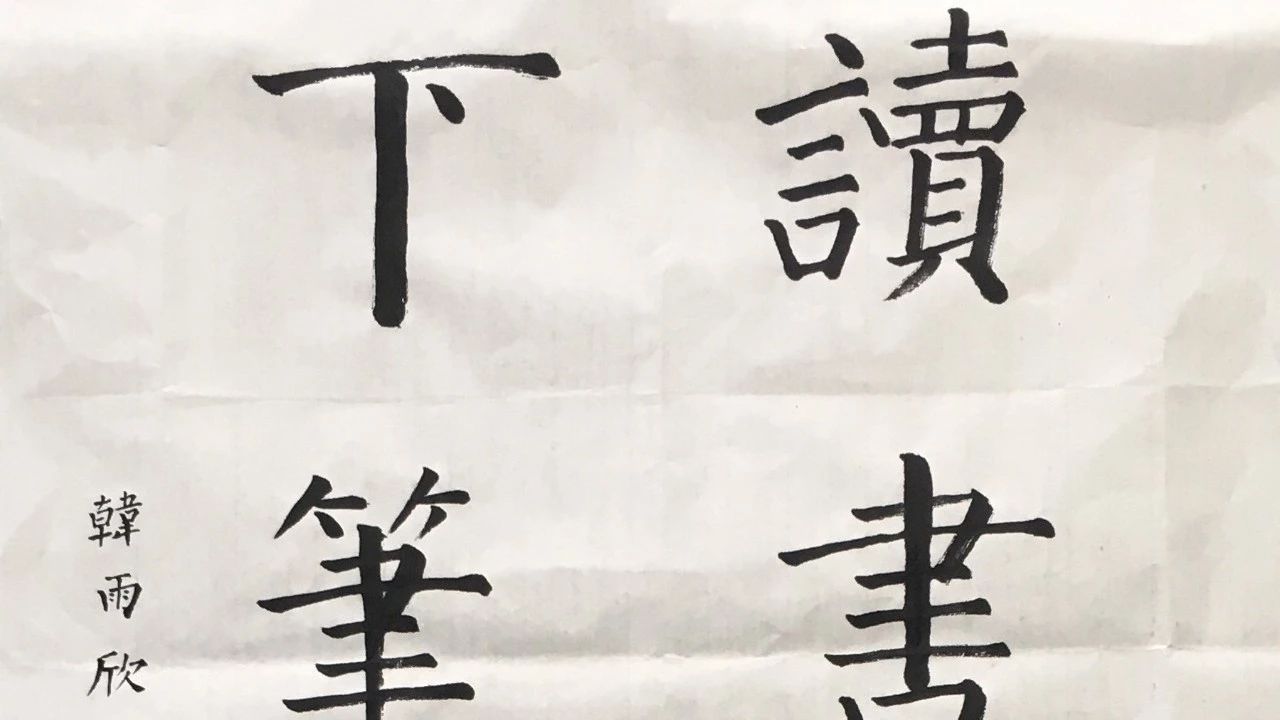 讀書
下筆
韓雨欣